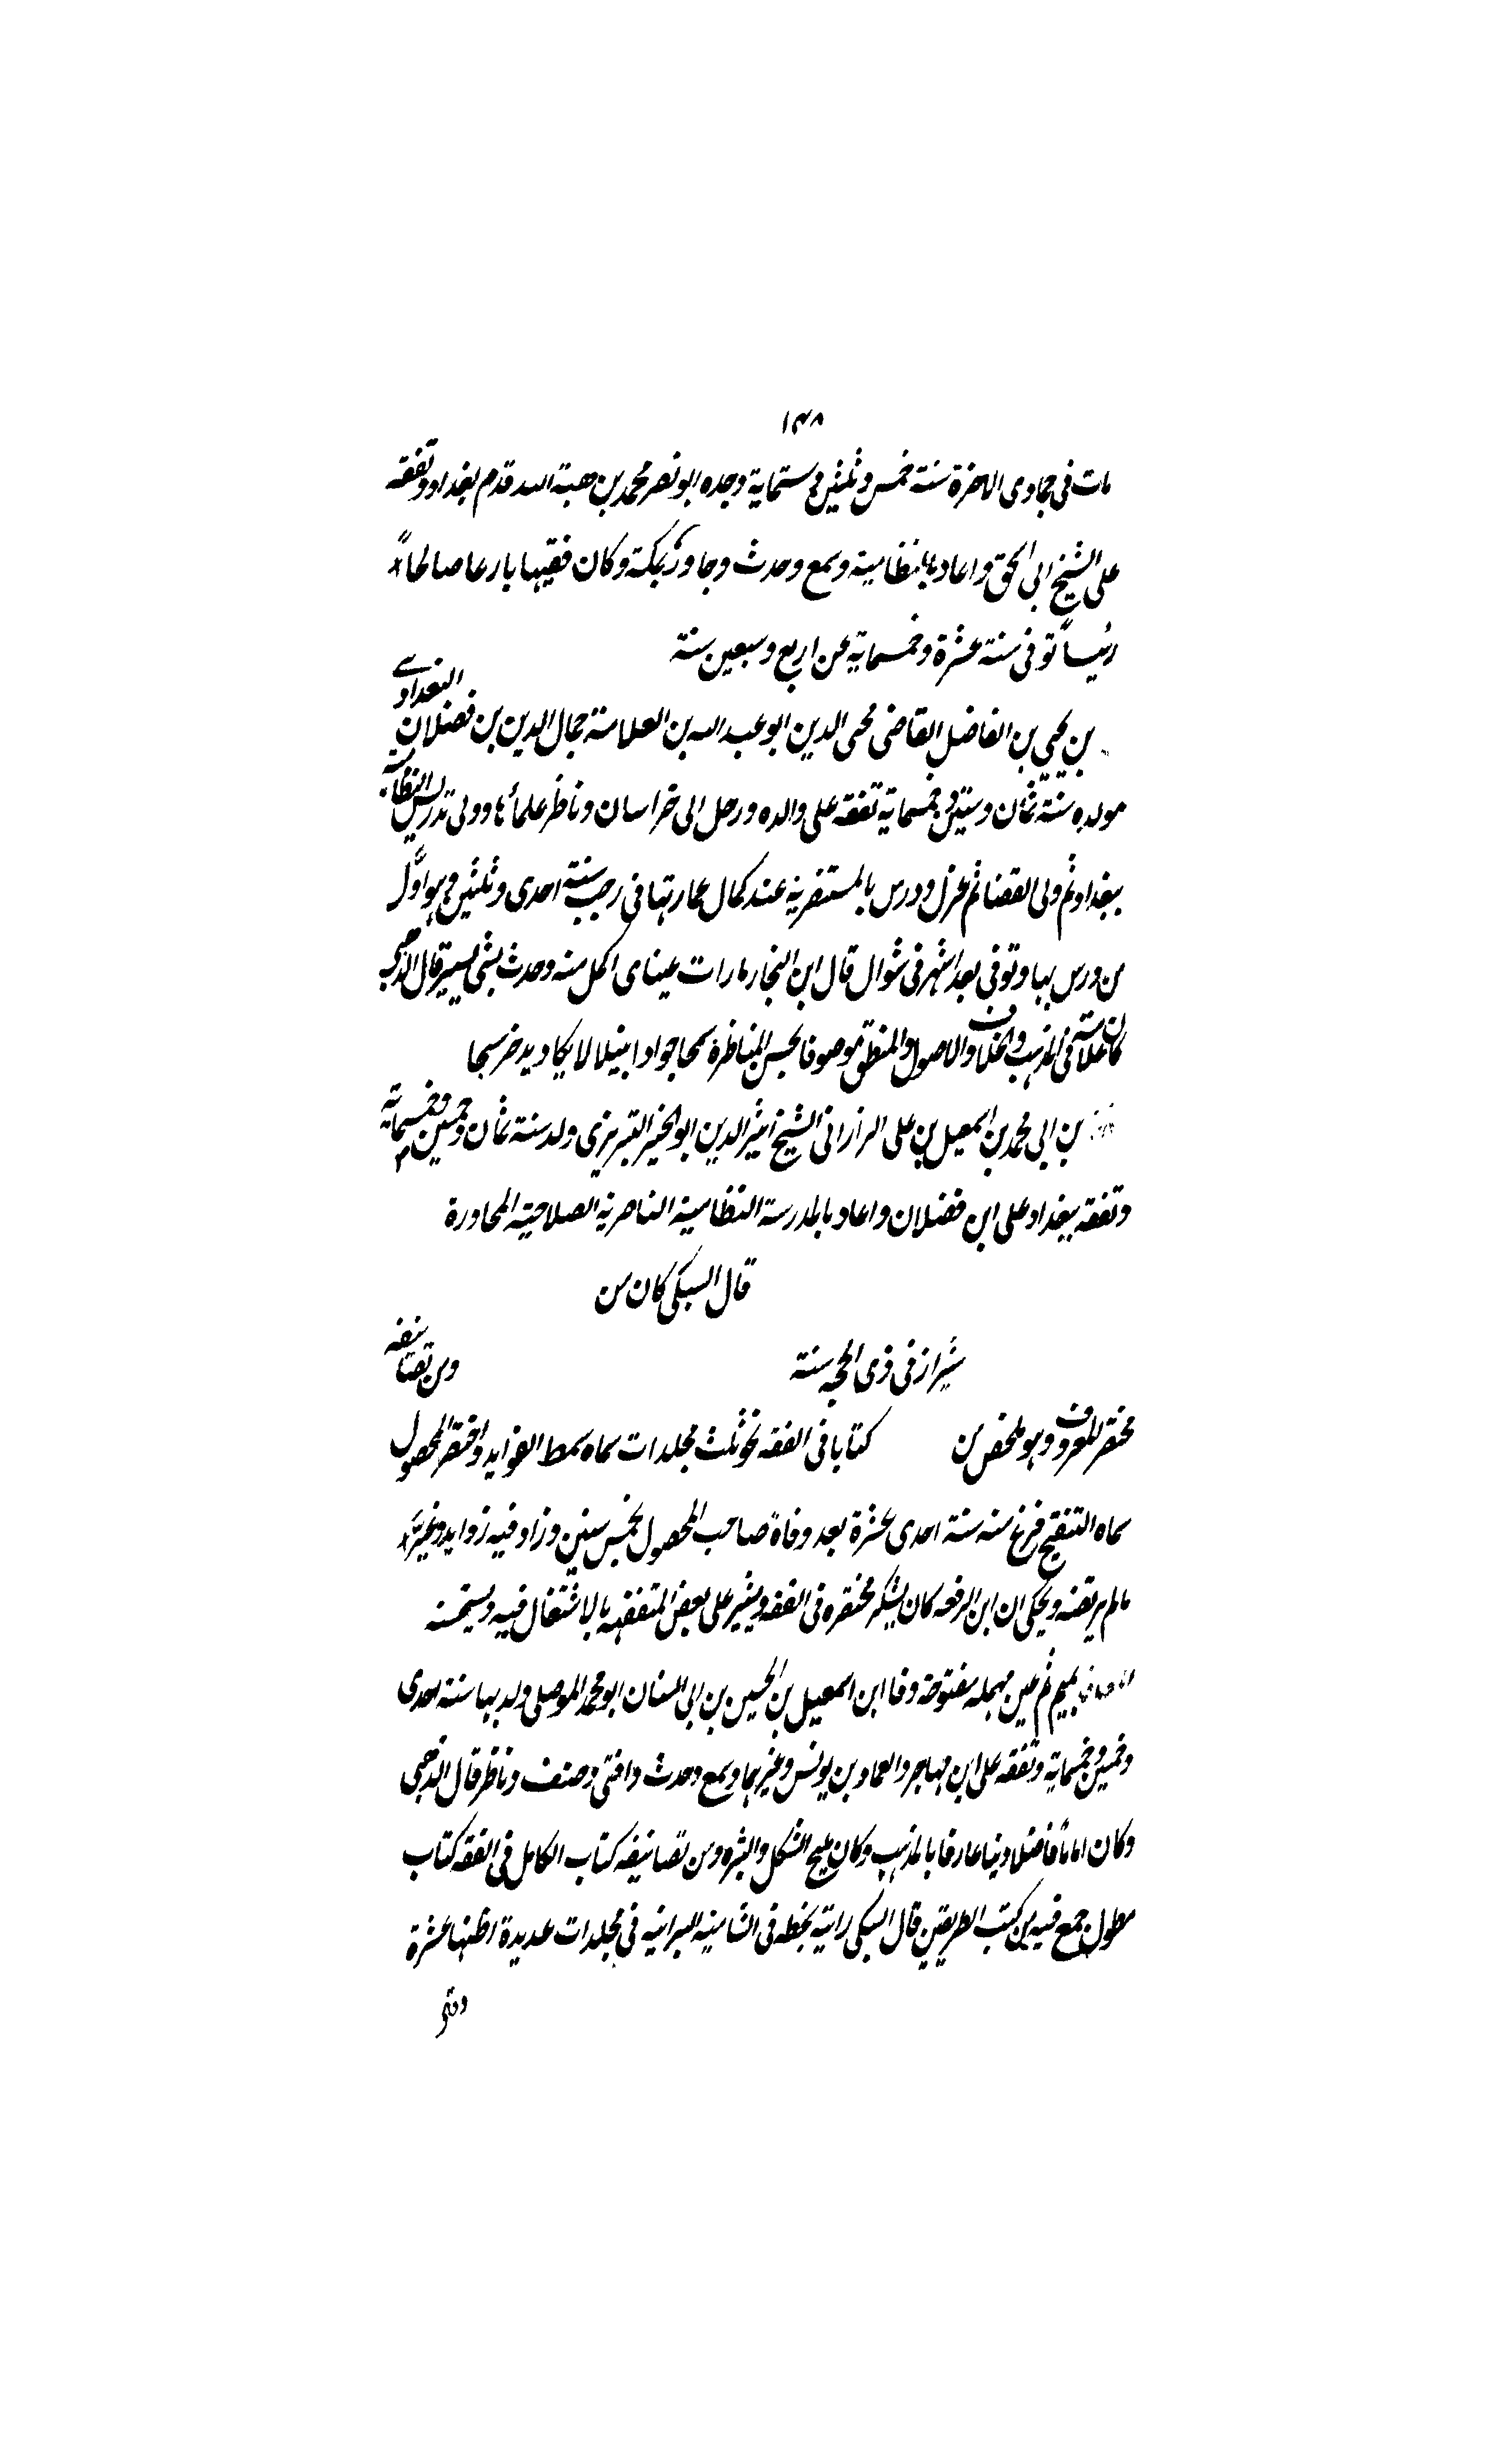 ١٤٨
مات فى جمادى الاخرة سنة خمس و ثلثين و ستماية وجده ابو نصر محمد بن هبة الله قدم بغداد وتفقه
على الشيخ ابى اسحق و اعاد بالنظامية وسمع وحدث وجاور بمكة وكان فقيها بارعا صالحاً
رئيساً توفى سنة عشرة وخمسماية عن اربع وسبعين سنة
بن يحيى بن الفاضل القاضى محى الدين ابو عبد الله بن العلامة جمال الدين بن فضلان البغدادى
مولده سنة ثمان وستين و خمسماية تفقه على والده ورحل الى خراسان وناظر علمائها وولى تدريس النظامية
ببغداد ثم ولى القضا ثم عزل ودرس بالمستنصرية عند كمال عمارتها فى رجب سنة احدى وثلثين و هو اوّل
من درس بها وتوفى بعد اشهر فى شوال قال ابن النجار ما رات عيناى اكمل منه وحدث بشى يسير قال الذهبى
كان علامة فى المذهب والخلاف والاصول والمنطق موصوفا بحسن المناظرة سمحا جوادا نبيلا لا يكاد يدخر شيا
بن ابى محمد بن اسمعيل بن على الرارانى الشيخ امين الدين ابو الخير التبريزى ولد سنة ثمان وخمسين وخمسماية
وتفقه ببغداد على ابن فضلان واعاد بالمدرسة النظامية الناصرية الصلاحية المجاورة
قال السبكى كان من
شيراز فى ذى الحجه سنة ومن تصانيفه
مختصر المعروف وهو ملخص من كتابا فى الفقه نحو ثلث مجلدات سماه سمط الفوايد واختصر المحصول
سماه التنقيح فرغ منه سنة احدى عشرة بعد وفاة صاحب المحصول بخمس سنين وزاد فيه زوايد وغيّر
مالم يرتضه ويحكى ان ابن الرفعه كان يشكر مختصره فى الفقه ويشير على بعض المتفقهه بالاشتغال فيه ويستحسنه
بميم ثم عين مهمله مفتوحة وفا ابن اسمعيل بن الحسين بن ابى السنان ابو محمد الموصلى ولد بها سنة احدى
وخمسين و خمسماية وتفقه على ابن مهاجر والعماد بن يونس وغيرهما وسمع وحدث وافتى وصنف وناظر قال الذهبى
وكان اماماً فاضلا دينا عارفا بالمذهب وكان مليح الشكل والبشره ومن تصانيفه كتاب الكامل فى الفقه كتاب
مطول جمع فيه بين كتب الطريقين قال السبكى رايته بخطه فى الشامية البرانيه فى مجلدات عديدة اظنها عشرة